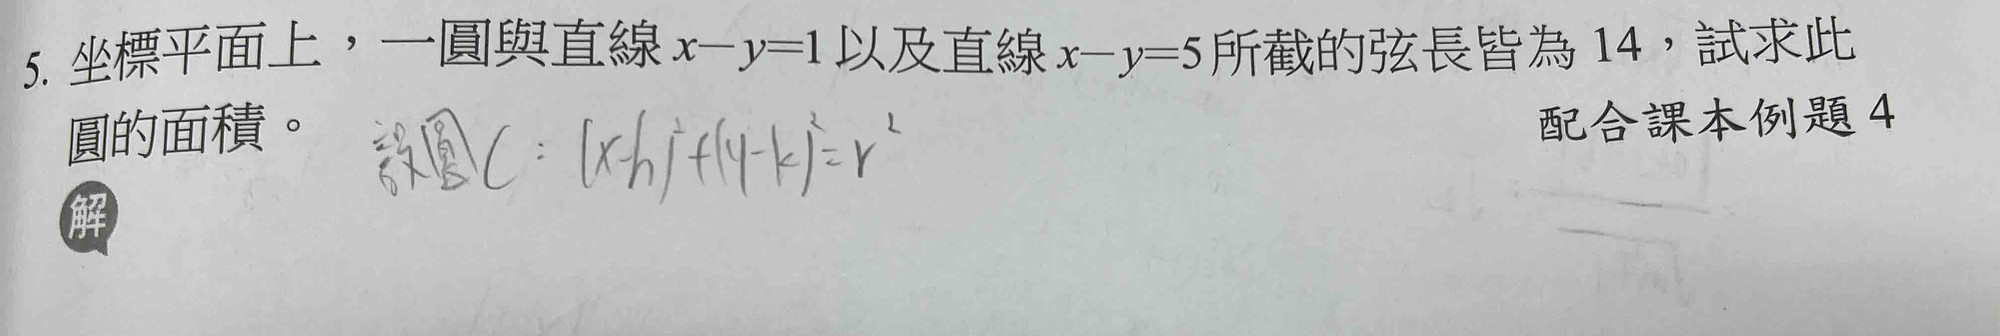 5. 坐標平面上，一圓與直線 x－y=1 以及直線 x－y=5 所截的弦長皆為 14，試求此
圓的面積。
配合課本例題 4
設圓C：(x-h)²+(y-k)²=r²
解